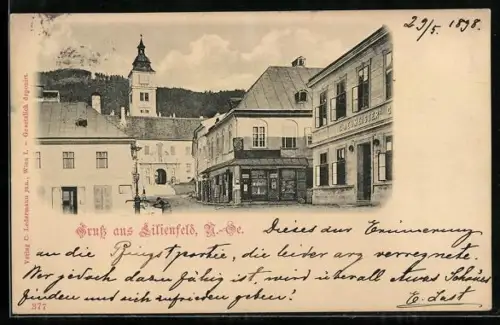 29/5 1898.
Gruß aus Lilienfeld, N.-Oe.
Dieses zur Erinnerung
an die Pfingstpartie, die leider arg verregnete.
Wer jedoch dazu fähig ist, wird überall etwas Schönes
finden und sich zufrieden geben!
E. Last
Verlag D. Ledermann jun., Wien I. - Gesetzlich deponirt.
377